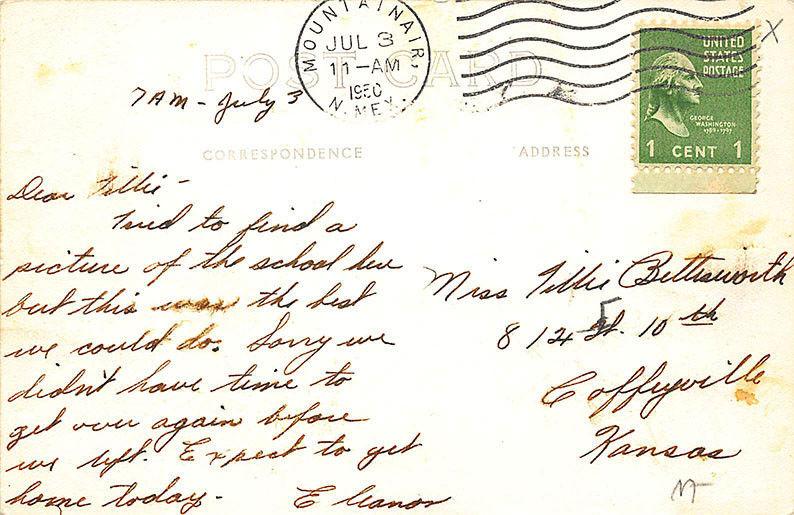 MOUNTAINAIR,
JUL 3
11-AM
1950
N. MEX.
UNITED
STATES
POSTAGE
GEORGE
WASHINGTON
1789-1797
1 CENT 1
X
POST CARD
7 AM - July 3
CORRESPONDENCE
ADDRESS
Dear Tillie -
Tried to find a
picture of the school here
but this was the best
we could do. Sorry we
didn't have time to
get over again before
we left. Expect to get
home today -
Eleanor
Miss Tillie Bettesworth
812 10th
Coffeyville
Kansas